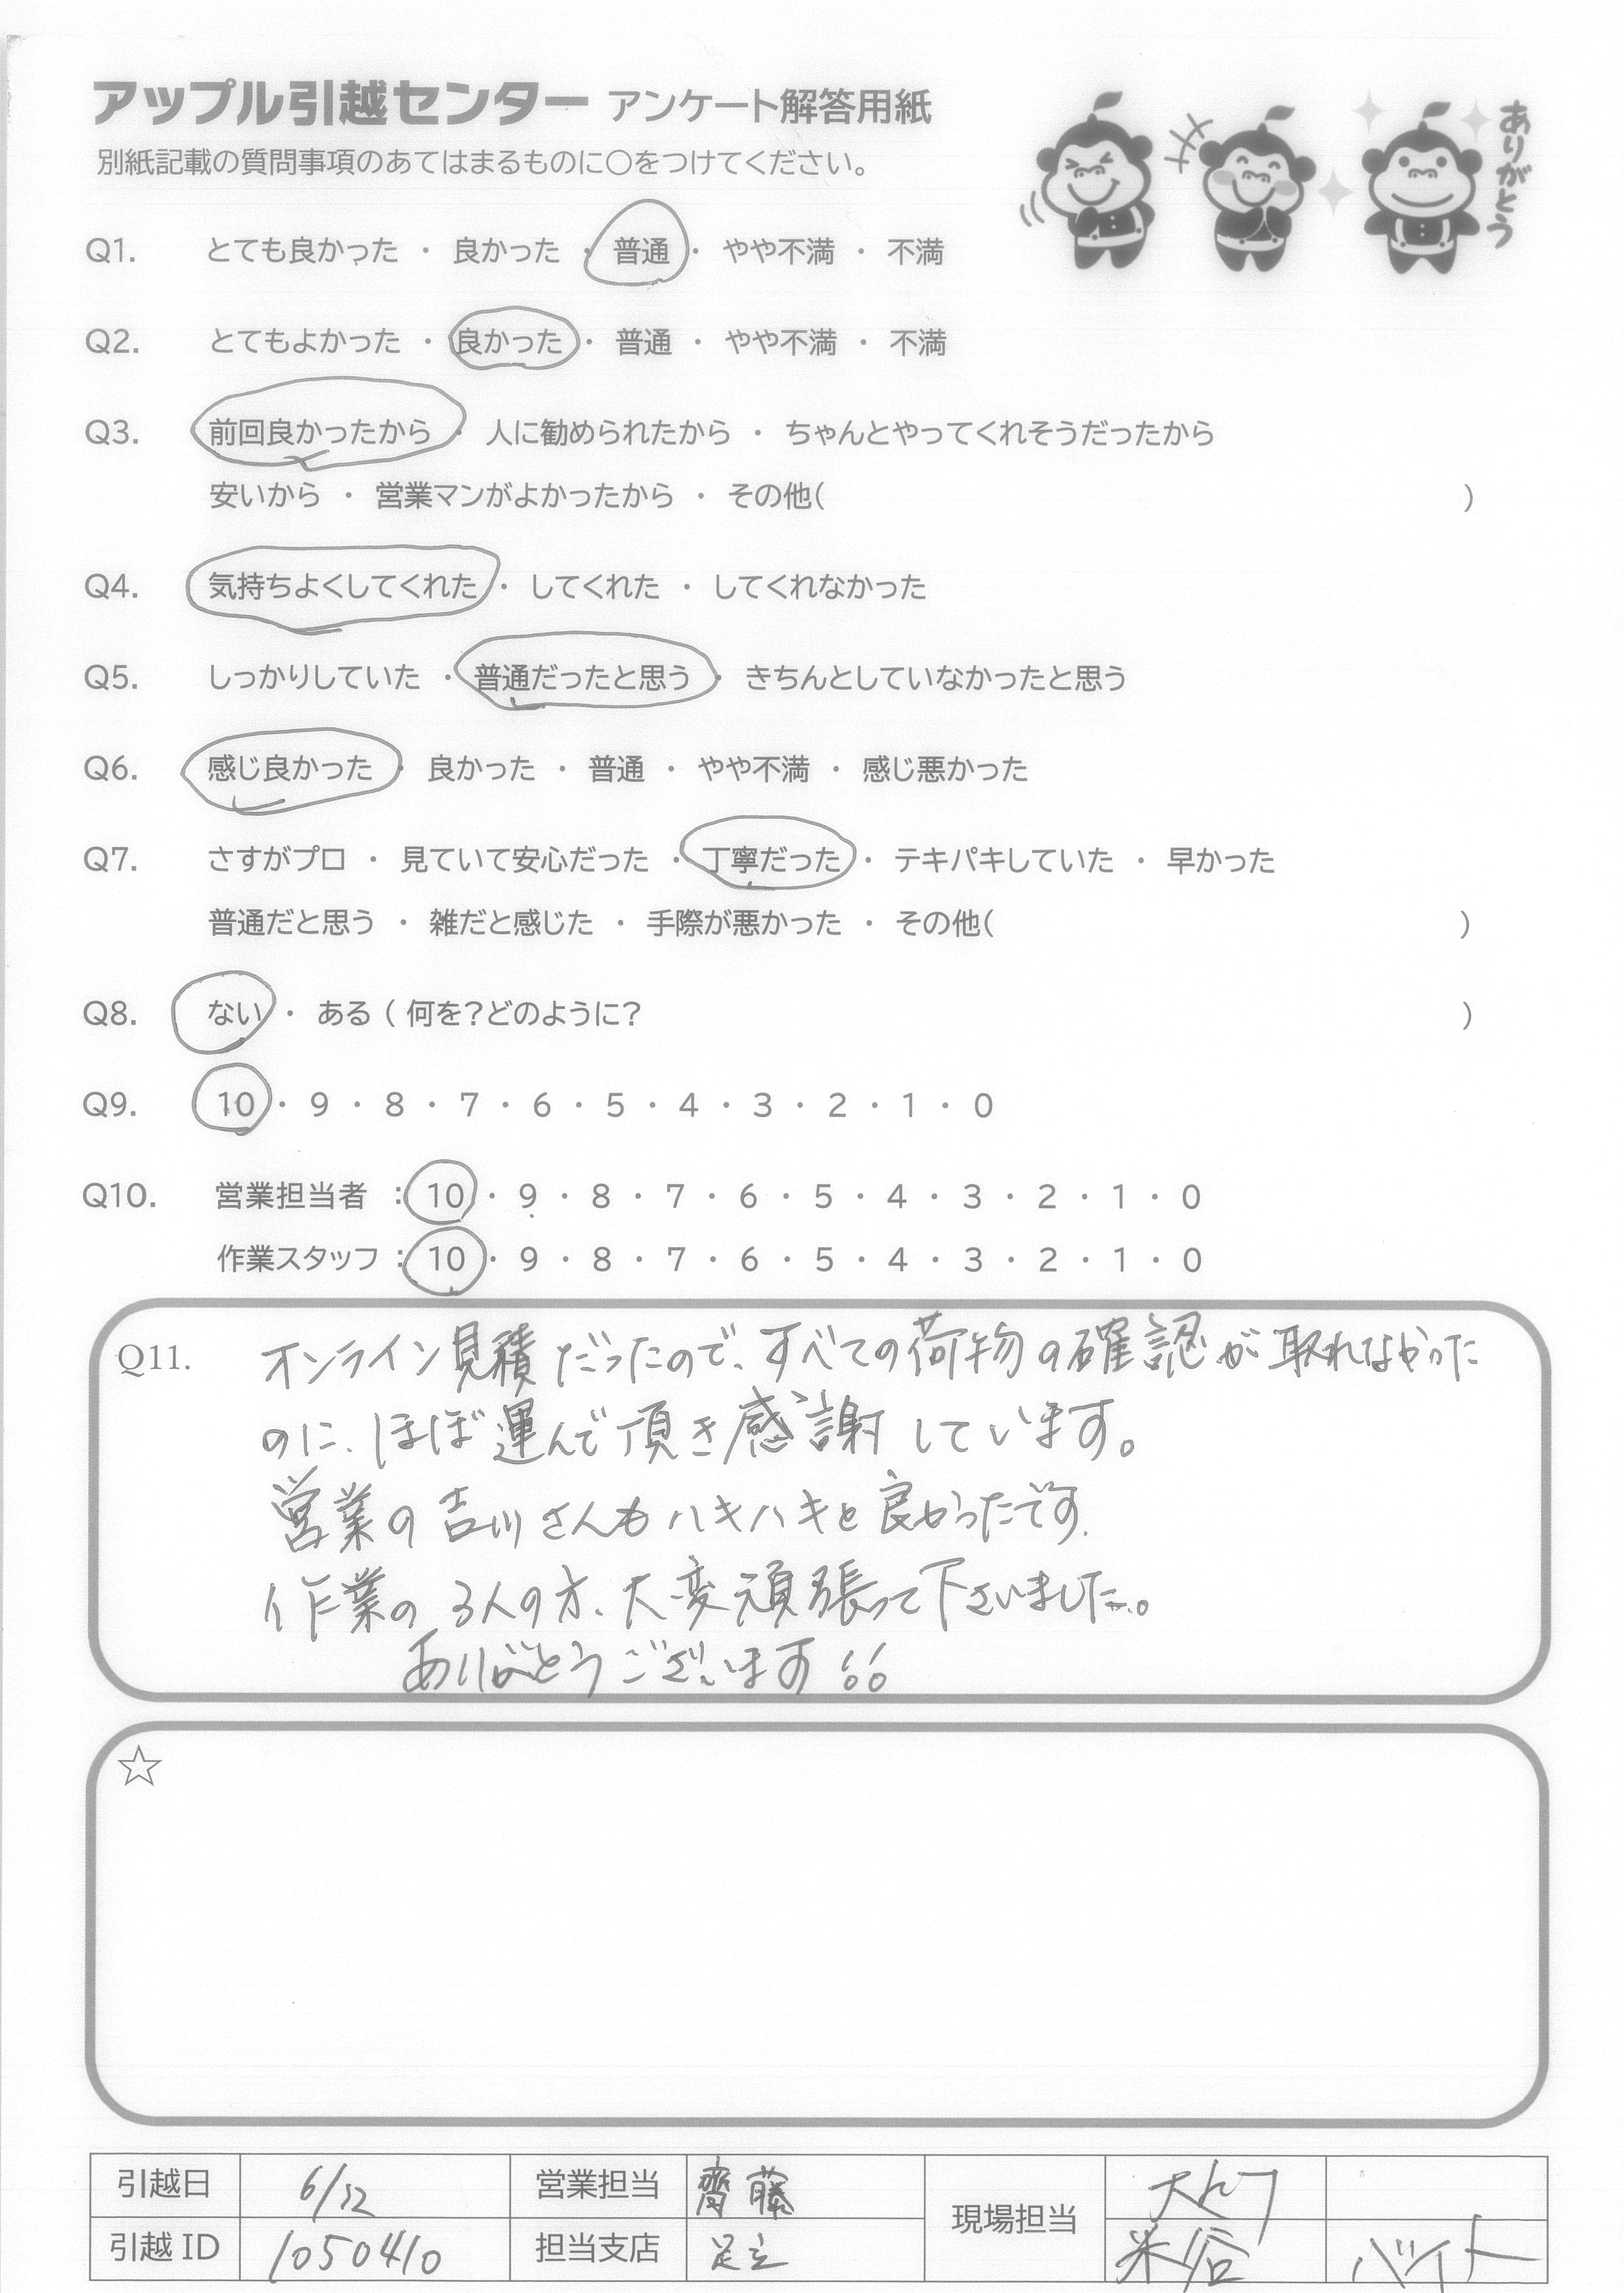 アップル引越センター アンケート解答用紙
別紙記載の質問事項のあてはまるものに○をつけてください。
ありがとう
Q1. とても良かった ・ 良かった ・ 普通 ・ やや不満 ・ 不満
Q2. とてもよかった ・ 良かった ・ 普通 ・ やや不満 ・ 不満
Q3. 前回良かったから ・ 人に勧められたから ・ ちゃんとやってくれそうだったから
安いから ・ 営業マンがよかったから ・ その他( )
Q4. 気持ちよくしてくれた ・ してくれた ・ してくれなかった
Q5. しっかりしていた ・ 普通だったと思う ・ きちんとしていなかったと思う
Q6. 感じ良かった ・ 良かった ・ 普通 ・ やや不満 ・ 感じ悪かった
Q7. さすがプロ ・ 見ていて安心だった ・ 丁寧だった ・ テキパキしていた ・ 早かった
普通だと思う ・ 雑だと感じた ・ 手際が悪かった ・ その他( )
Q8. ない ・ ある ( 何を?どのように? )
Q9. 10 ・ 9 ・ 8 ・ 7 ・ 6 ・ 5 ・ 4 ・ 3 ・ 2 ・ 1 ・ 0
Q10. 営業担当者 : 10 ・ 9 ・ 8 ・ 7 ・ 6 ・ 5 ・ 4 ・ 3 ・ 2 ・ 1 ・ 0
作業スタッフ : 10 ・ 9 ・ 8 ・ 7 ・ 6 ・ 5 ・ 4 ・ 3 ・ 2 ・ 1 ・ 0
Q11. オンライン見積だったので、すべての荷物の確認が取れなかった
のに、ほぼ運んで頂き感謝しています。
営業の吉川さんもハキハキと良かったです.
作業の3人の方、大変頑張って下さいました。
ありがとうございます!!
☆
引越日 6/12 営業担当 齊藤 現場担当
引越 ID 1050410 担当支店 足立 米谷 バイト